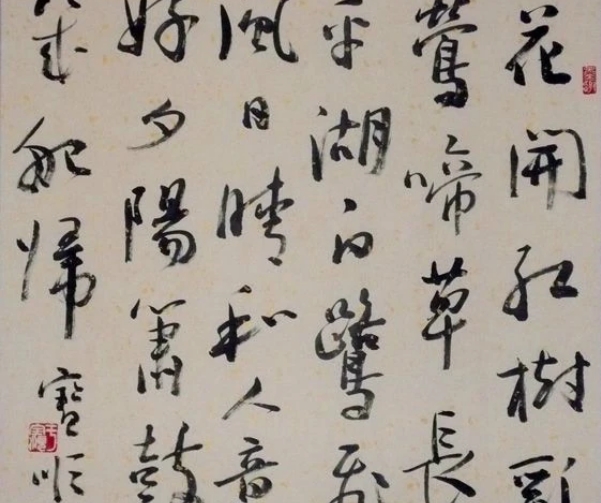 花開紅樹亂
鶯啼草長
平湖白鷺飛
風日晴和人意
好夕陽簫鼓
幾船歸 寶順